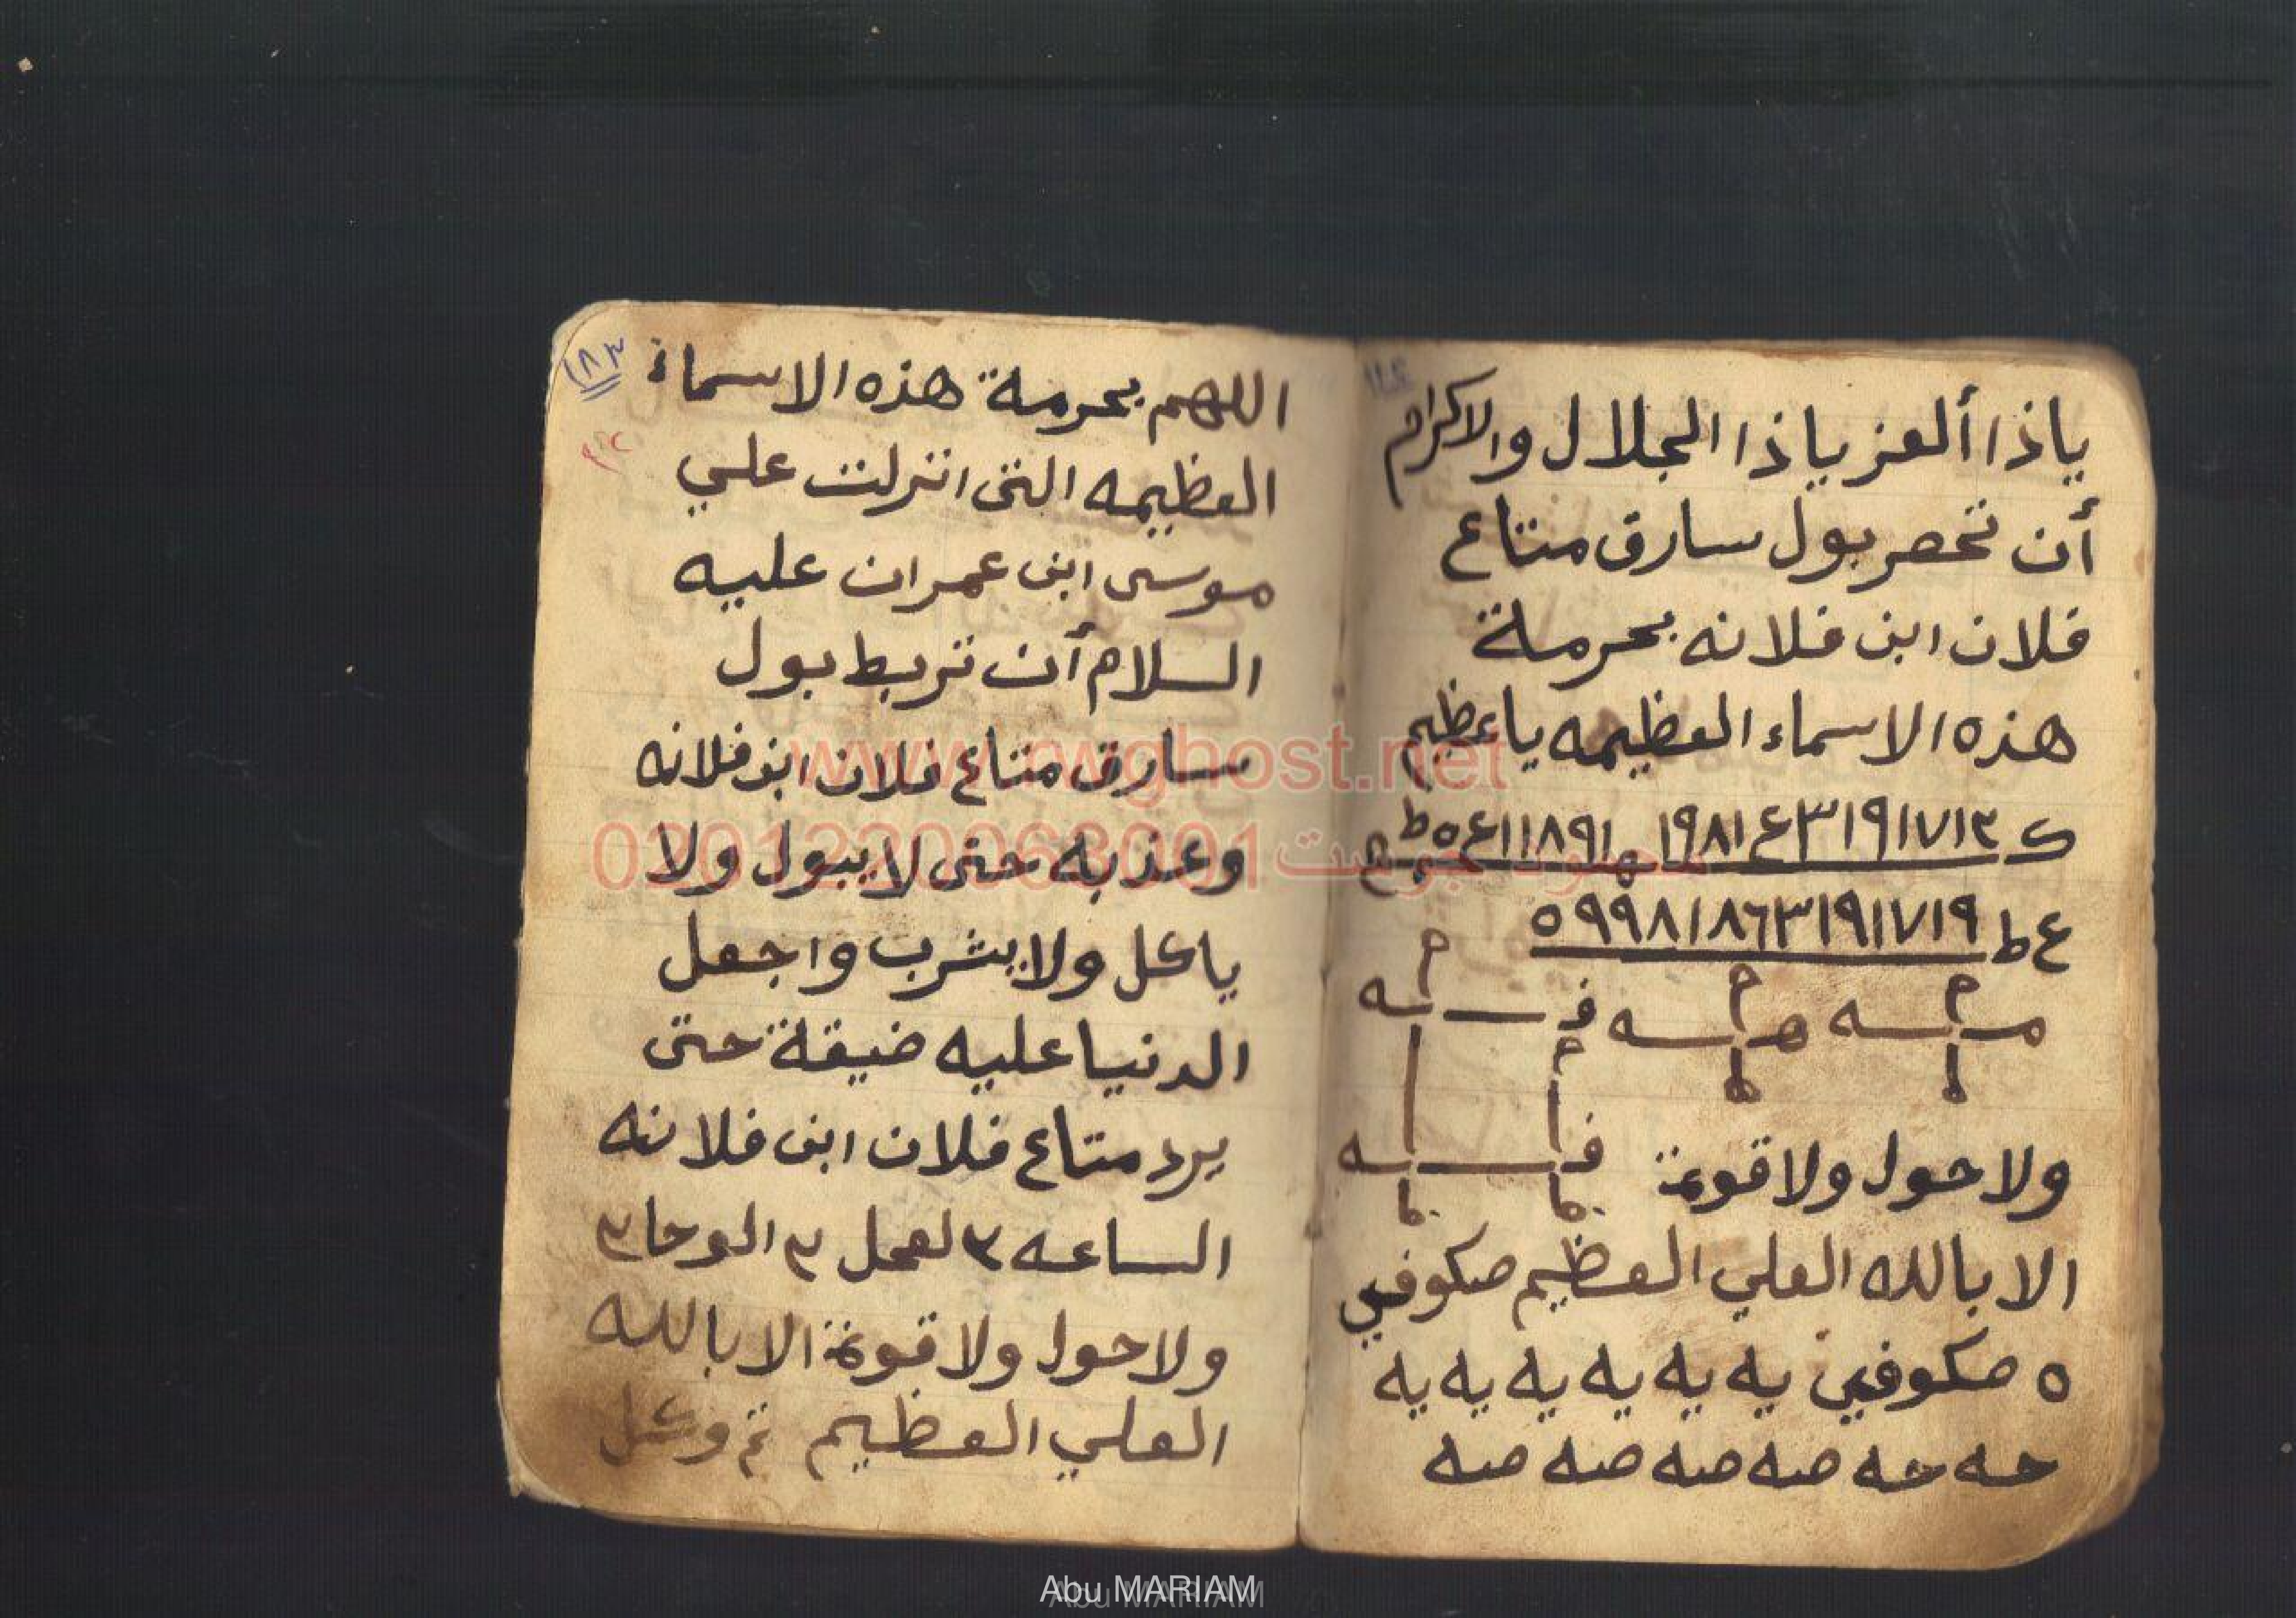 ياذا ألعز ياذا الجلال والاكرام
أن تحصر بول سارق متاع
فلان ابن فلانه بحرمة
هذه الاسماء العظيمه ياعظيم
ع ط ٩١٧١٩١٣٦٨١٨٩٩٥
ولاحول ولاقوة
الابالله العلي العظيم صكوفي
٥ صكوفي يه يه يه يه يه يه
حه حه صه صه صه صه
١٨٣
اللهم بحرمة هذه الاسماء
العظيمه التى انزلت علي
موسى ابن عمران عليه
السلام أن تربط بول
سارق متاع فلان ابن فلانه
وعذبه حتى لايبول ولا
ياكل ولايشرب واجعل
الدنيا عليه ضيقة حتى
يرد متاع فلان ابن فلانه
الساعه ٣ لعجل ٣ الوحا ٣
ولاحول ولاقوة الابالله
العلي العظيم تم وكمل
www.rwghost.net
محمود جوست 0201220063001
Abu MARIAM